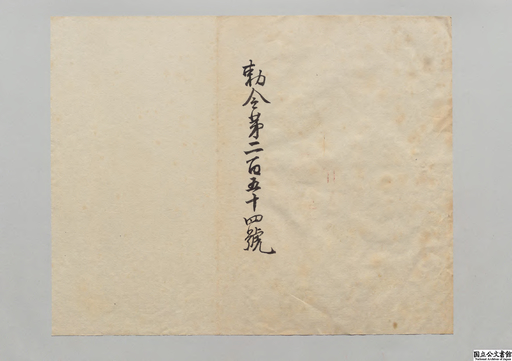 勅令第二百五十四號
国立公文書館
National Archives of Japan